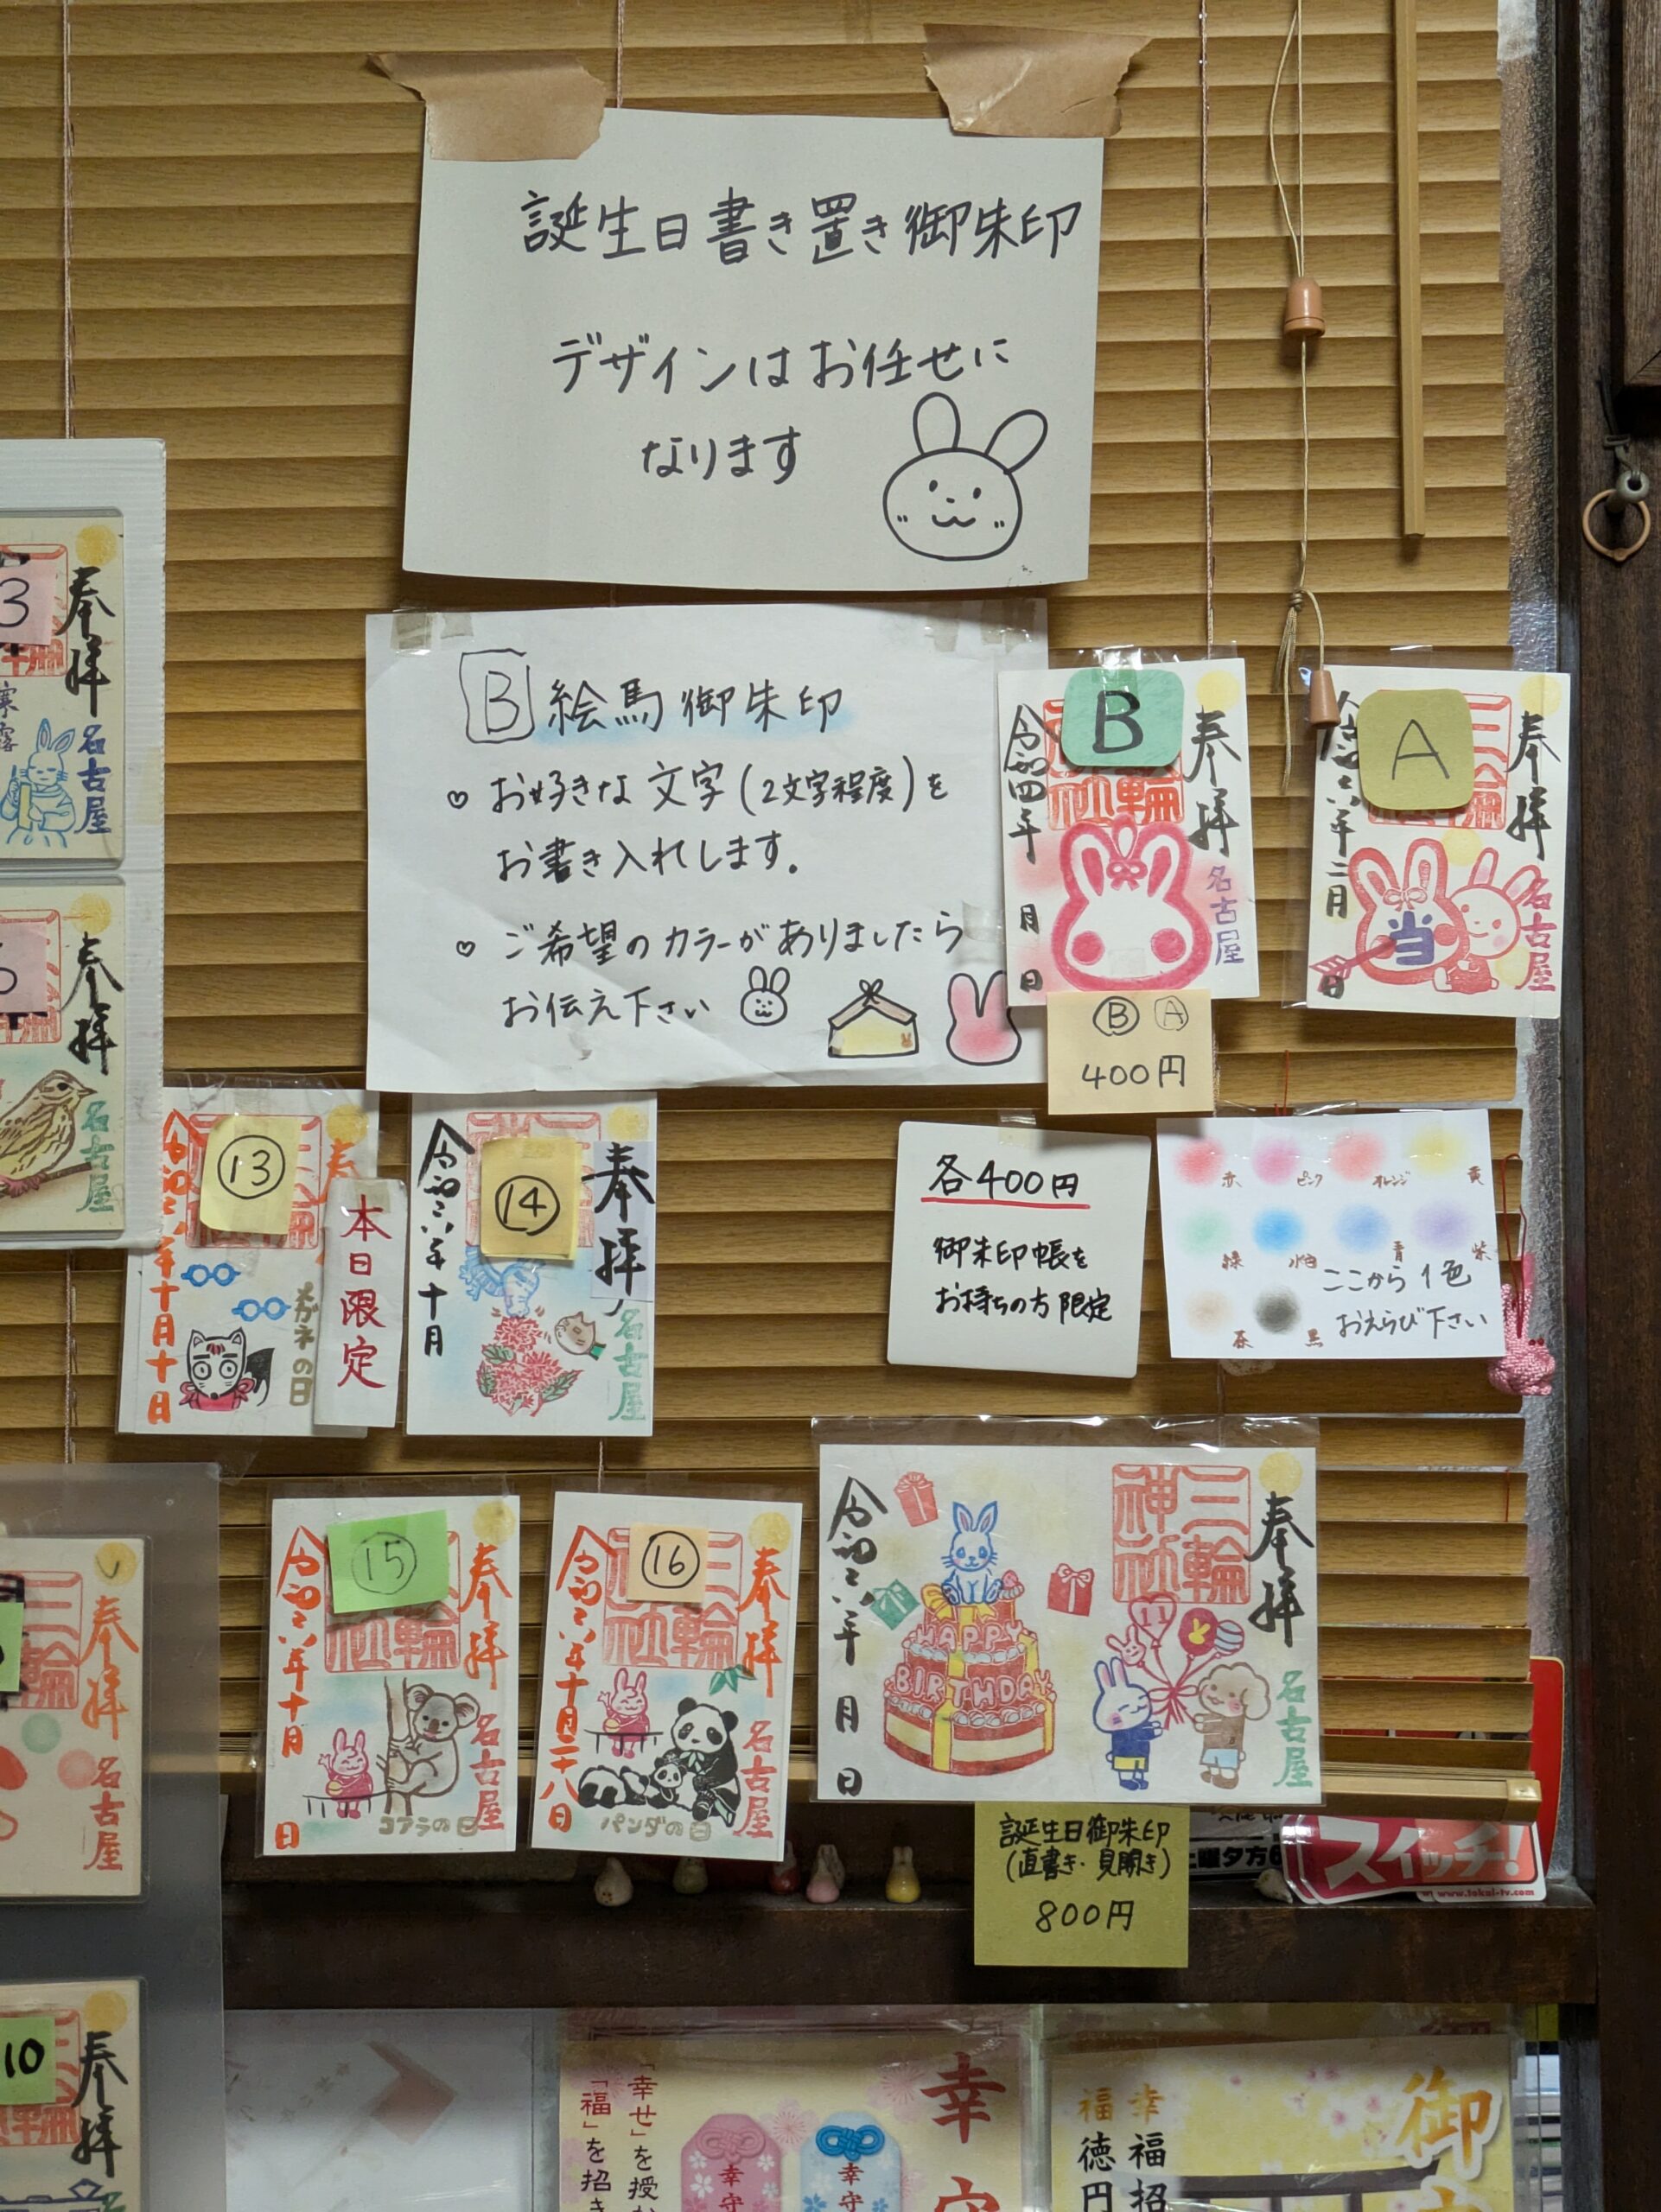 誕生日書き置き御朱印
デザインはお任せに
なります
B 絵馬御朱印
♡ お好きな文字(2文字程度)を
お書き入れします。
♡ ご希望のカラーがありましたら
お伝え下さい
B
奉拝
三輪神社
令和四年 月 日
名古屋
A
奉拝
三輪
令和六年二月 日
名古屋
当
Ⓑ Ⓐ
400円
3
奉拝
寒露
名古屋
奉拝
名古屋
⑬
令和六年十月十日
メガネの日
本日限定
⑭
奉拝
令和六年十月
名古屋
各400円
御朱印帳を
お持ちの方限定
赤 ピンク オレンジ 黄
緑 水色 青 紫
茶 黒
ここから1色
おえらび下さい
⑮
奉拝
令和六年十月 日
名古屋
コアラの日
⑯
奉拝
令和六年十月二十八日
名古屋
パンダの日
奉拝
三輪神社
令和六年 月 日
HAPPY
BIRTHDAY
11
名古屋
誕生日御朱印
(直書き・見開き)
800円
土曜夕方6
スイッチ!
www.tokai-tv.com
奉拝
三輪
名古屋
10
奉拝
幸守
「幸せ」を授か
「福」を招き
幸守
幸守
御
幸福招
福徳円